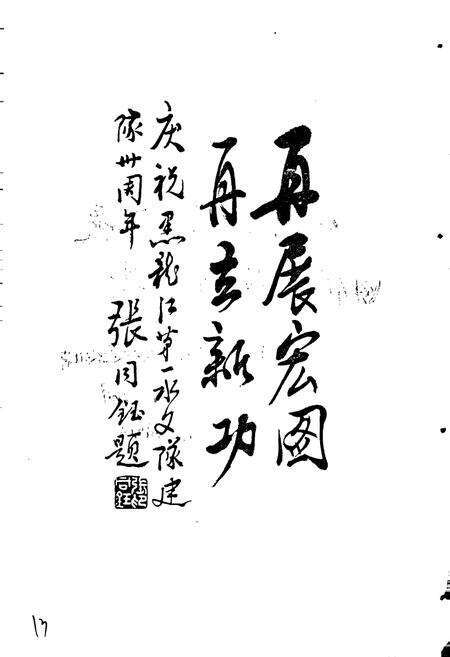 再展宏图
再立新功
庆祝黑龙江第一水文队建
队卅周年
张同钰题
17